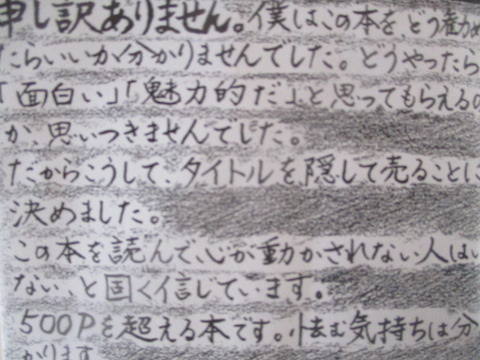 申し訳ありません。僕はこの本を、どう勧め
たらいいか分かりませんでした。どうやったら
「面白い」「魅力的だ」と思ってもらえるの
か、思いつきませんでした。
だからこうして、タイトルを隠して売ることに
決めました。
この本を読んで、心が動かされない人はい
ない、と固く信じています。
500Pを超える本です。怯む気持ちは分
かります